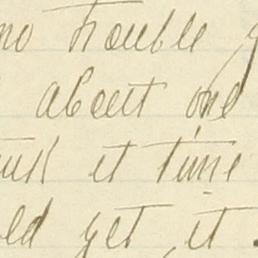 no trouble
about one
it time
get it.